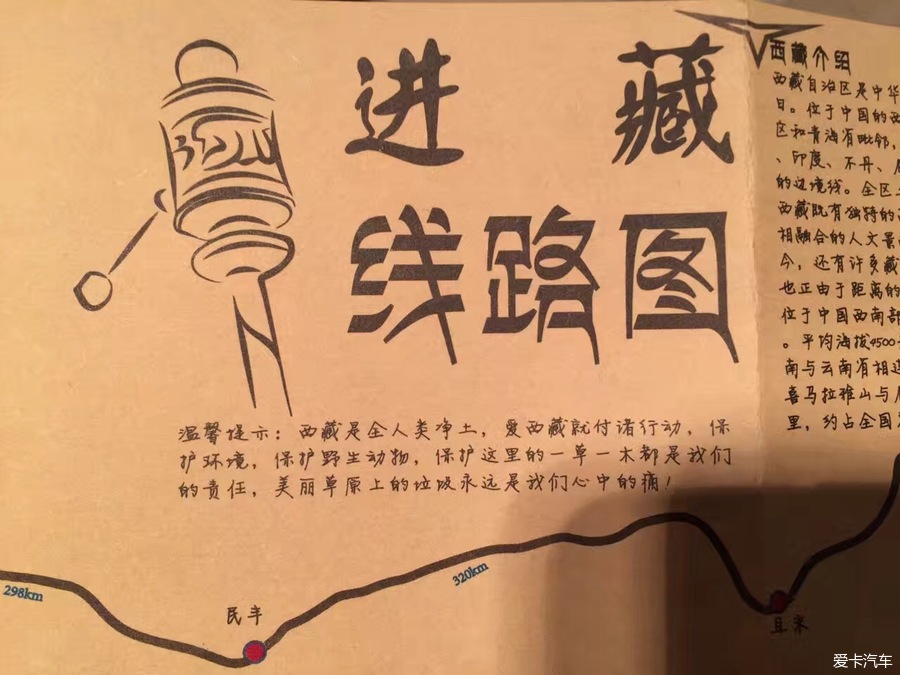 进 藏
线路图
温馨提示：西藏是全人类净土，爱西藏就付诸行动，保
护环境，保护野生动物，保护这里的一草一木都是我们
的责任，美丽草原上的垃圾永远是我们心中的痛！
西藏介绍
西藏自治区是中华
目。位于中国的西
区和青海有毗邻，
、印度、不丹、
的边境线。全区
西藏既有独特的
相融合的人文景
今，还有许多藏
也正由于距离的
位于中国西南部
。平均海拔4500
南与云南有相连
喜马拉雅山与
里，约占全国
298km
民丰
320km
且末
爱卡汽车